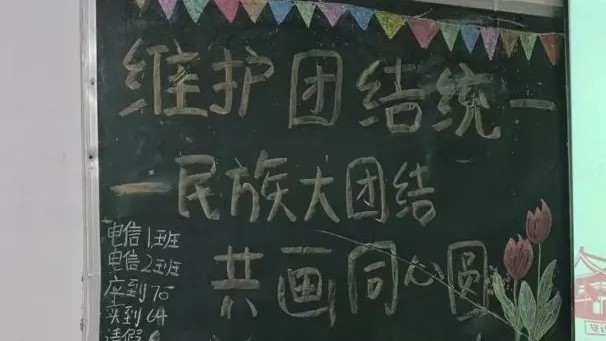 维护团结统一
一民族大团结
共画同心圆
电信1班
电信2班
应到70
实到64
请假